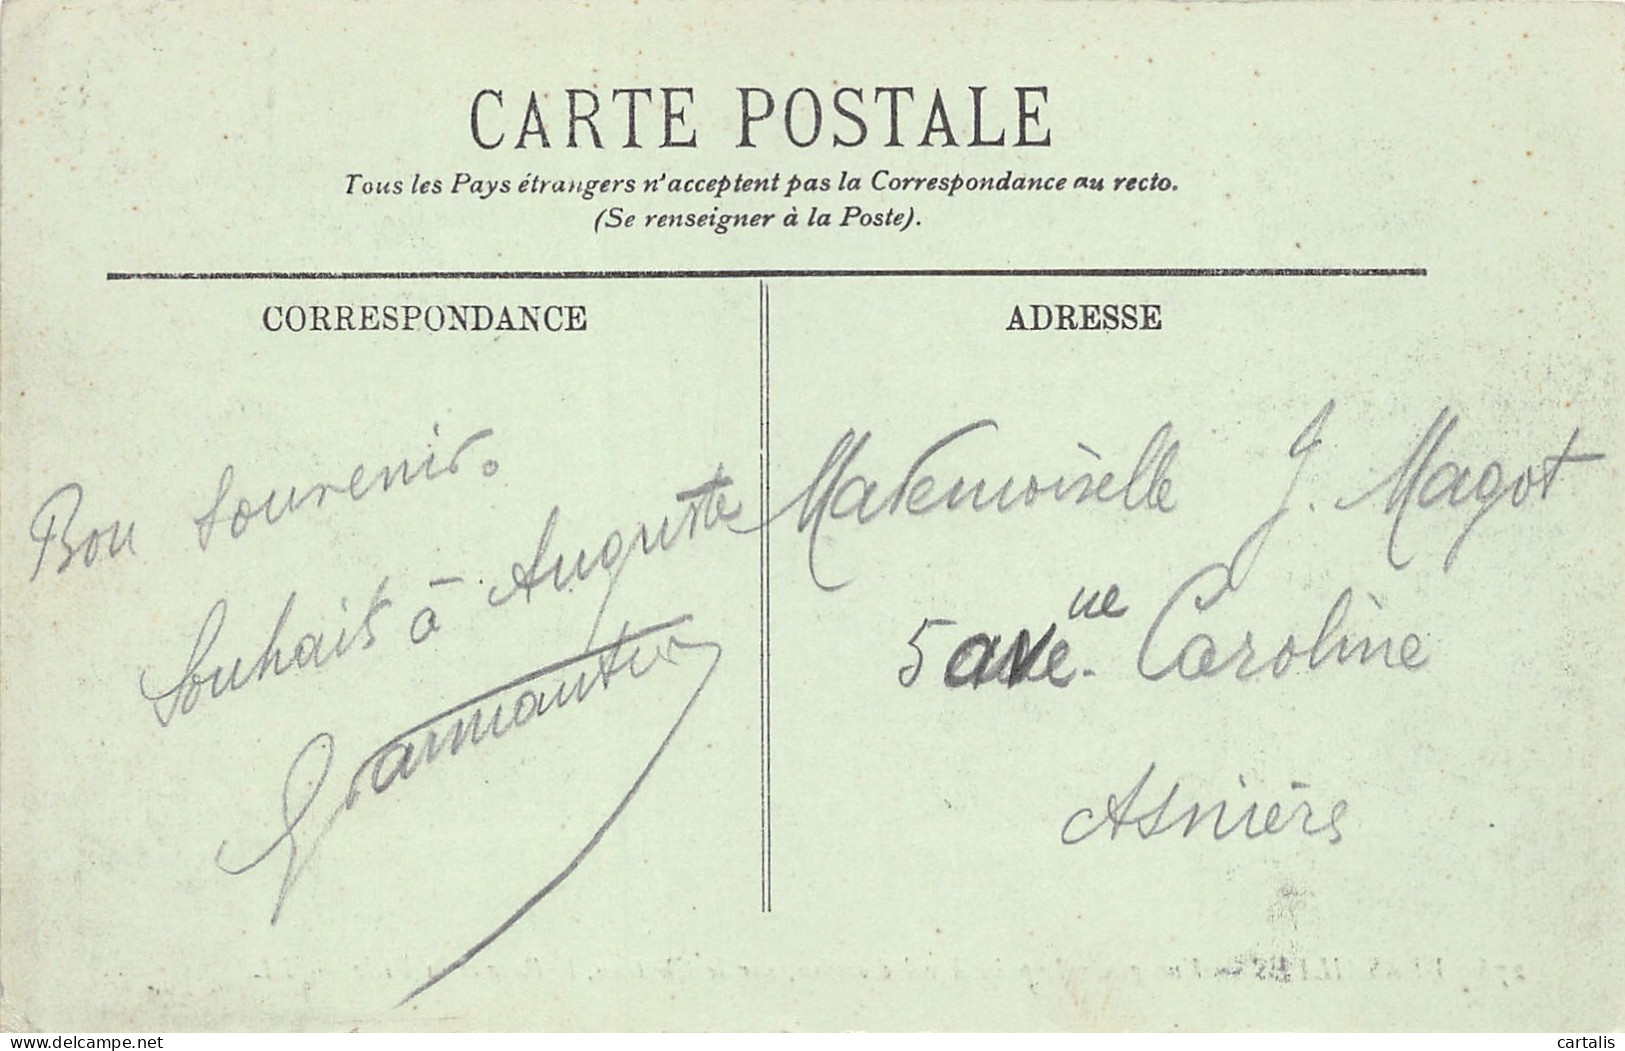 CARTE POSTALE
Tous les Pays étrangers n'acceptent pas la Correspondance au recto.
(Se renseigner à la Poste).
CORRESPONDANCE
ADRESSE
Bon souvenir.
Souhaits à Auguste
Mademoiselle J. Magot
5 avenue Caroline
Asnières
www.delcampe.net
cartalis